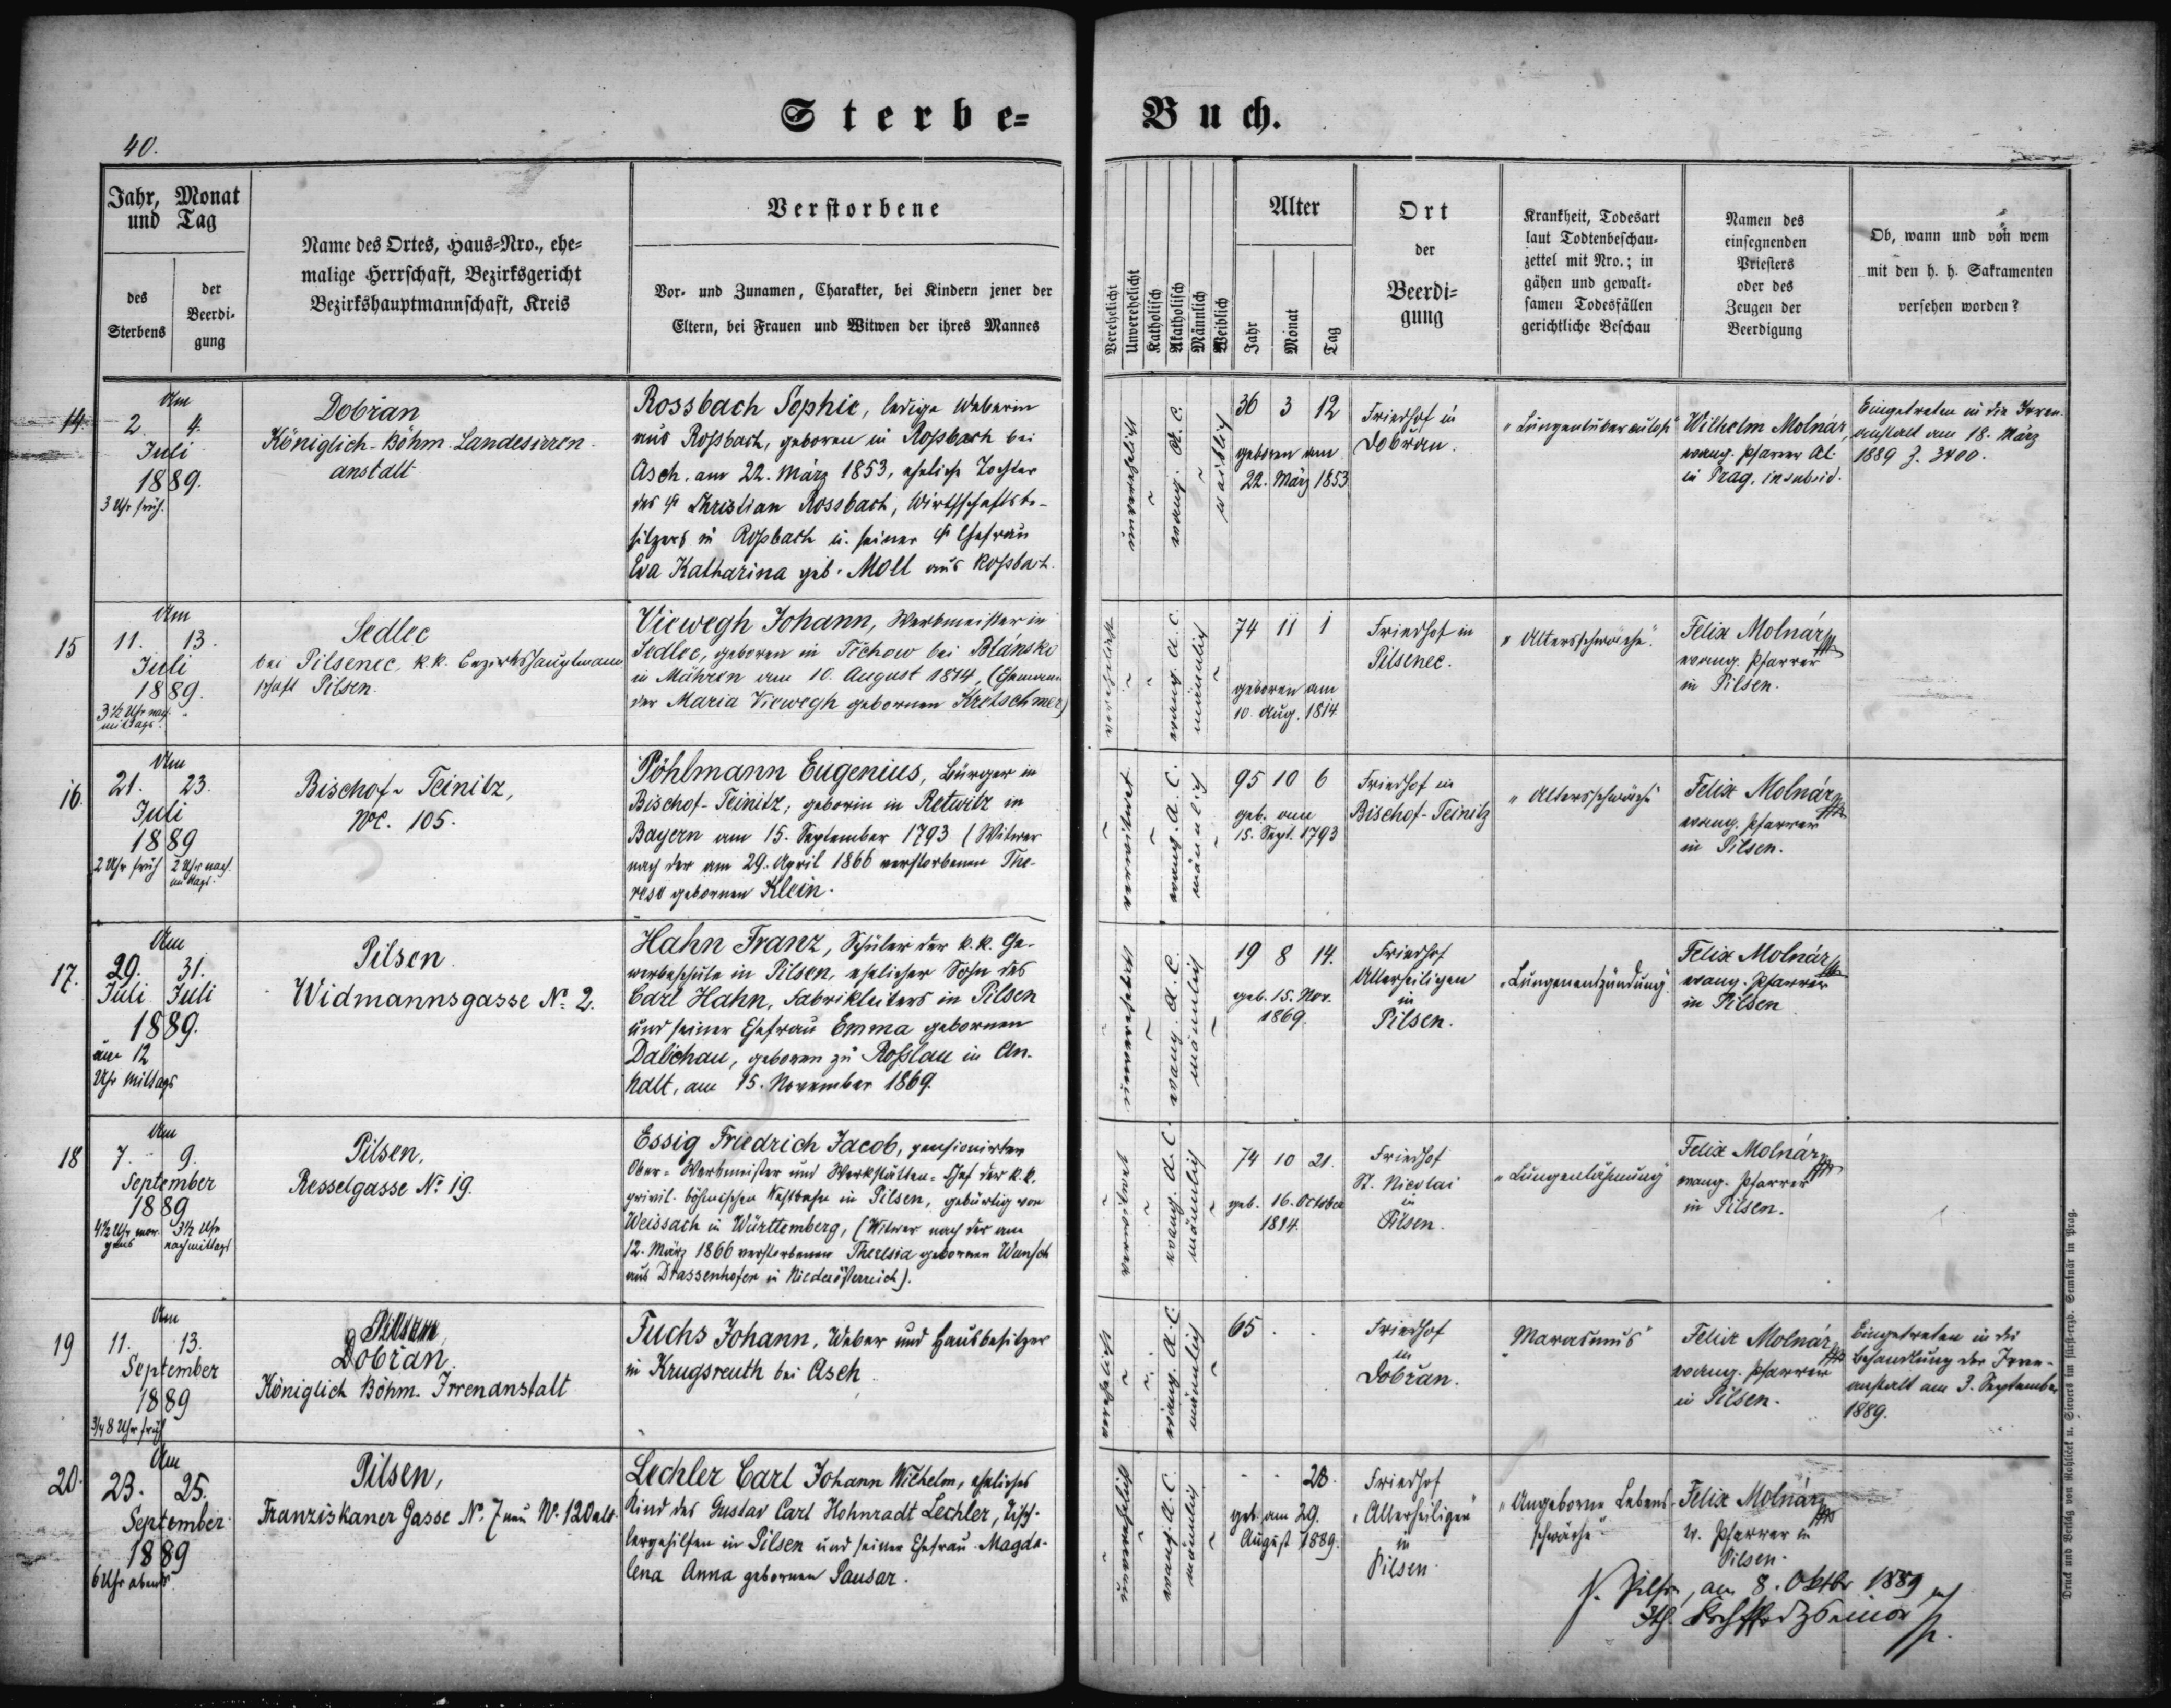 Sterbe-Buch.
40.
Jahr, Monat
und Tag
des
Sterbens
der
Beerdi-
gung
Name des Ortes, Haus-Nro., ehe-
malige Herrschaft, Bezirksgericht
Bezirkshauptmannschaft, Kreis
Verstorbene
Vor- und Zunamen, Charakter, bei Kindern jener der
Eltern, bei Frauen und Witwen der ihres Mannes
Verehelicht
Unverehelicht
Katholisch
Akatholisch
Männlich
Weiblich
Alter
Jahr
Monat
Tag
Ort
der
Beerdi-
gung
Krankheit, Todesart
laut Todtenbeschau-
zettel mit Nro.; in
gähen und gewalt-
samen Todesfällen
gerichtliche Beschau
Namen des
einsegnenden
Priesters
oder des
Zeugen der
Beerdigung
Ob, wann und von wem
mit den h. h. Sakramenten
versehen worden?
14.
Am
2. 4.
Juli
1889.
3 Uhr früh.
Dobřan
Königlich-Böhm. Landesirren-
anstalt
Rossbach Sophie, ledige Weberin
aus Roßbach, geboren in Roßbach bei
Asch, am 22. März 1853, eheliche Tochter
des † Christian Rossbach, Wirthschaftsbe-
sitzers in Roßbach u. seiner † Ehefrau
Eva Katharina geb. Moll aus Roßbach.
unverehelicht
evang. A. C.
weiblich
36 3 12
geboren am
22. März 1853
Friedhof in
Dobřan.
"Lungentuberculose"
Wilhelm Molnár,
evang. Pfarrer A.C.
in Prag, in subsid.
Eingetreten in die Irren-
anstalt am 18. März
1889 Z. 3400.
15
Am
11. 13.
Juli
1889.
3½ Uhr nach-
mittags
Sedlec
bei Pilsenec, k.k. Bezirkshauptmann-
schaft Pilsen.
Viewegh Johann, Werkmeister in
Sedlec, geboren in Těchow bei Blánsko
in Mähren am 10. August 1814, (Ehemann
der Maria Viewegh gebornen Kretschmer)
verehelicht
evang. A. C.
männlich
74 11 1
geboren am
10. Aug. 1814.
Friedhof in
Pilsenec.
"Altersschwäche."
Felix Molnár
evang. Pfarrer
in Pilsen.
16.
Am
21. 23.
Juli
1889
2 Uhr früh 2 Uhr nach-
mittags.
Bischof-Teinitz,
NC. 105.
Pöhlmann Eugenius, Bürger in
Bischof-Teinitz, geborin in Retwitz in
Bayern am 15. September 1793 (Witwer
nach der am 29. April 1866 verstorbenen The-
rese gebornen Klein.
verwitwet
evang. A. C.
männlich
95 10 6
geb. am
15. Sept. 1793
Friedhof in
Bischof-Teinitz
"Altersschwäche"
Felix Molnár
evang. Pfarrer
in Pilsen.
17.
Am
29. 31.
Juli Juli
1889.
um 12
Uhr Mittags
Pilsen
Widmannsgasse No. 2.
Hahn Franz, Schüler der k.k. Ge-
werbeschule in Pilsen, ehelicher Sohn des
Carl Hahn, Fabrikleiters in Pilsen
und seiner Ehefrau Emma gebornen
Dalichau, geboren zu Roßlau in An-
halt, am 15. November 1869.
unverehelicht
evang. A. C.
männlich
19 8 14.
geb. 15. Nov.
1869.
Friedhof
Allerheiligen
in
Pilsen.
"Lungenentzündung"
Felix Molnár
evang. Pfarrer
in Pilsen
18
Am
7. 9.
September
1889
4½ Uhr mor-
gens
3½ Uhr
nachmittags
Pilsen,
Resselgasse No. 19.
Essig Friedrich Jacob, pensionirter
Ober-Werkmeister und Werkstätten-Chef der k.k.
privil. böhmischen Westbahn in Pilsen, gebürtig von
Weissach in Württemberg, (Witwer nach der am
12. März 1866 verstorbenen Theresia gebornen Wunsch
aus Drassenhofen in Niederösterreich).
verwitwet
evang. A. C.
männlich
74 10 21.
geb. 16. October
1814.
Friedhof
St. Nicolai
in
Pilsen.
"Lungenlähmung"
Felix Molnár
evang. Pfarrer
in Pilsen.
19
Am
11. 13.
September
1889
3/4 8 Uhr früh
Pilsen
Dobřan.
Königlich Böhm. Irrenanstalt
Fuchs Johann, Weber und Hausbesitzer
in Krugsreuth bei Asch
verehelicht
evang. A. C.
männlich
65 . .
Friedhof
in
Dobřan.
"Marasmus"
Felix Molnár
evang. Pfarrer
in Pilsen.
Eingetreten in die
Behandlung der Irren-
anstalt am 3. September
1889.
20.
Am
23. 25.
September
1889
6 Uhr abends
Pilsen,
Franziskaner Gasse No. 7 neu No. 120 alt.
Lechler Carl Johann Wilhelm, eheliches
Kind des Gustav Carl Hohnradt Lechler, Tisch-
lergehilfen in Pilsen und seiner Ehefrau Magda-
lena Anna gebornen Pausar.
unverehelicht
evang. A. C.
männlich
- - 28.
geb. am 29.
August 1889.
Friedhof
"Allerheiligen"
in
Pilsen.
"Angeborne Lebens-
schwäche"
Felix Molnár
ev. Pfarrer in
Pilsen.
V. Pilsen, am 8. Oktbr 1889
Druck und Verlag von Rohliček u. Sievers im fürst-erzb. Seminär in Prag.